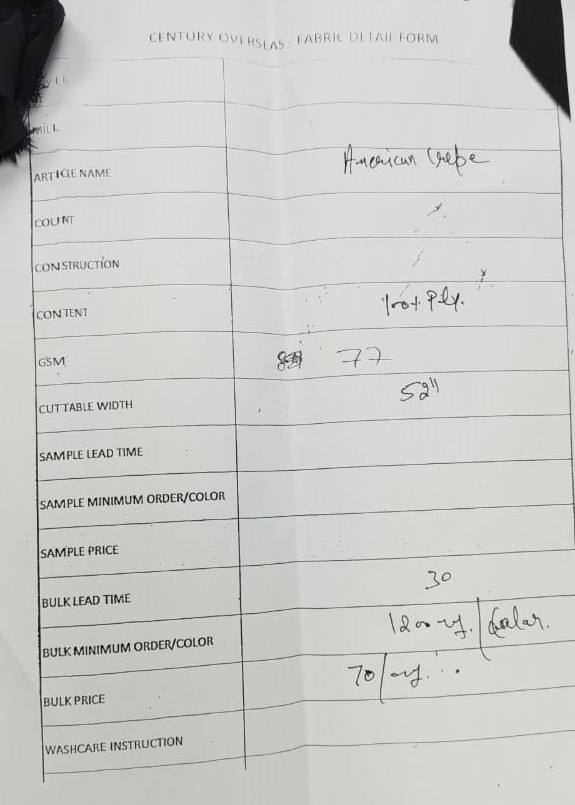 CENTURY OVERSEAS - FABRIC DETAIL FORM
MILL
ARTICLE NAME American Crepe
COUNT
CONSTRUCTION
CONTENT 100% Ply.
GSM 77
CUTTABLE WIDTH 52"
SAMPLE LEAD TIME
SAMPLE MINIMUM ORDER/COLOR
SAMPLE PRICE
BULK LEAD TIME 30
BULK MINIMUM ORDER/COLOR 1200
BULK PRICE 70/
WASHCARE INSTRUCTION